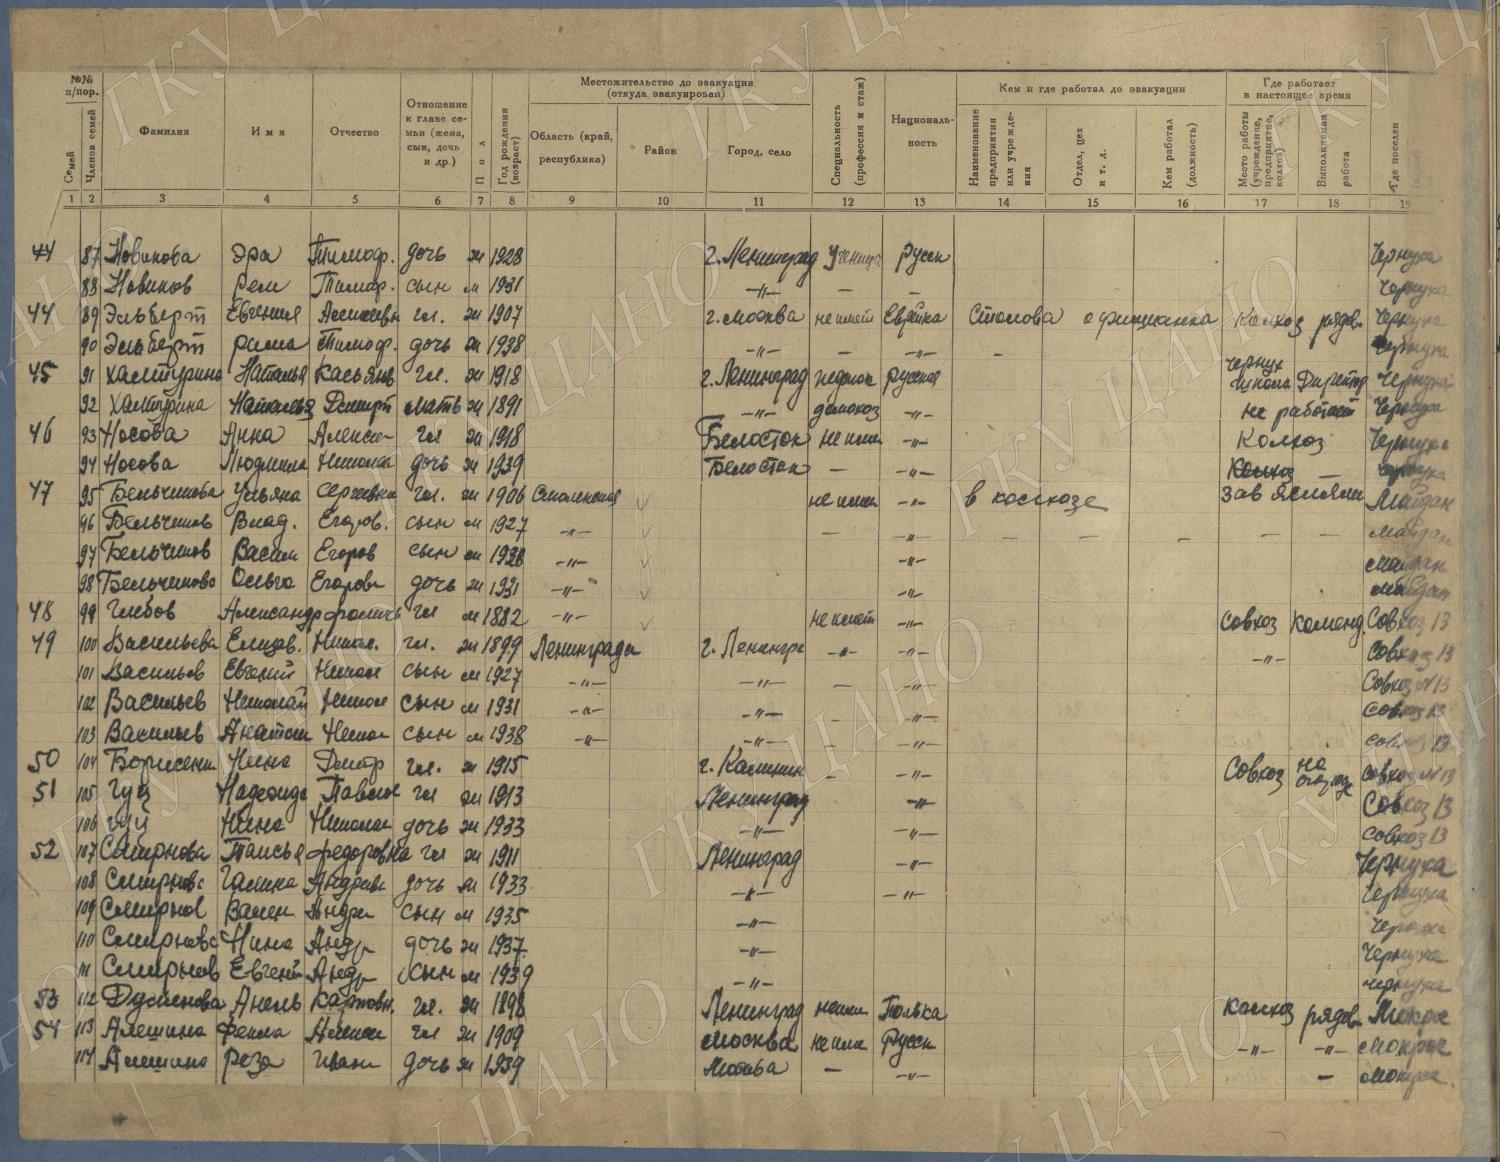 №№ п/пор.
Семей
Членов семей
Фамилия
Имя
Отчество
Отношение к главе семьи (жена, сын, дочь и др.)
Пол
Год рождения (возраст)
Местожительство до эвакуации (откуда эвакуирован)
Область (край, республика)
Район
Город, село
Специальность (профессия и стаж)
Националь-ность
Кем и где работал до эвакуации
Наименование предприятия или учрежде-ния
Отдел, цех и т. д.
Кем работал (должность)
Где работает в настоящее время
Место работы (учреждение, предприятие, колхоз)
Выполняемая работа
Где поселен
1 2 3 4 5 6 7 8 9 10 11 12 13 14 15 16 17 18 19
87 Новикова Эра Тимоф. дочь ж 1928 г. Ленинград Русск Чернуха
88 Новиков Рем Тимоф. сын м 1931 -"- – – Чернуха
44 89 Эльберт Евгения гл. ж 1907 г. Москва не имет Еврейка официантка Колхоз рядов. Чернуха
90 Эльберт Рима Тимоф. дочь ж 1938 -"- – -"- – Чернуха
45 91 Халтурина Наталья Касьянов гл. ж 1918 г. Ленинград русская Чернух школа Директор Чернуха
92 Халтурина Дмитр мать ж 1891 -"- домохоз -"- не работает Чернуха
46 93 Носова Анна Алексе гл ж 1918 Белосток не име -"- Колхоз Чернуха
94 Носова Людмила дочь ж 1939 Белосток – -"- Колхоз – Чернуха
47 95 Бельчикова Ульяна Сергеевна гл. ж 1906 Смоленская не имеи -"- в колхозе зав яслями Майдан
96 Бельчиков Влад. Егоров. сын м 1927 -"- – -"- – – – – – Майдан
97 Бельчиков Васили Егоров сын м -"- -"- Майдан
98 Бельчикова Ольга Егоров дочь ж 1931 -"- -"- Майдан
48 99 Глебов Александр гл м 1882 -"- не имет -"- Совхоз Совхоз 13
49 100 Васильева Елизав. Никол. гл. ж 1899 Ленинград г. Ленингр -"- -"- -"- Совхоз 13
101 Васильев Евгений Никол сын м 1927 -"- -"- – -"- Совхоз №13
102 Васильев Николай Никол сын м 1931 -"- -"- – -"- Совхоз 13
103 Васильев Анатол Никол сын м 1938 -"- -"- – -"- Совхоз 13
50 104 Нина Дмитр гл. ж 1915 г. Калинин – -"- Совхоз Совхоз №13
51 105 Надежда Павлов гл ж 1913 Ленинград -"- Совхоз 13
106 Нина Никола дочь ж 1933 -"- -"- Совхоз 13
52 107 Смирнова Таисья Федоровна гл ж 1911 Ленинград -"- Чернуха
108 Смирнова Галина Андреев дочь ж 1933 -"- -"- Чернуха
109 Смирнов Вален Андре сын м 1935 -"- Чернуха
110 Смирнова Нина Андр дочь ж 1937 -"- Чернуха
111 Смирнов Евгений Андр сын м 1939 -"- Чернуха
53 112 Карловн. гл. ж 1898 Ленинград не име Полька Колхоз рядов
54 113 Алешина Фекла гл ж 1909 Москва не име Русск -"- -"-
114 Алешина Роза Иван дочь ж 1939 Москва – -"- –
ГКУ ЦАНО